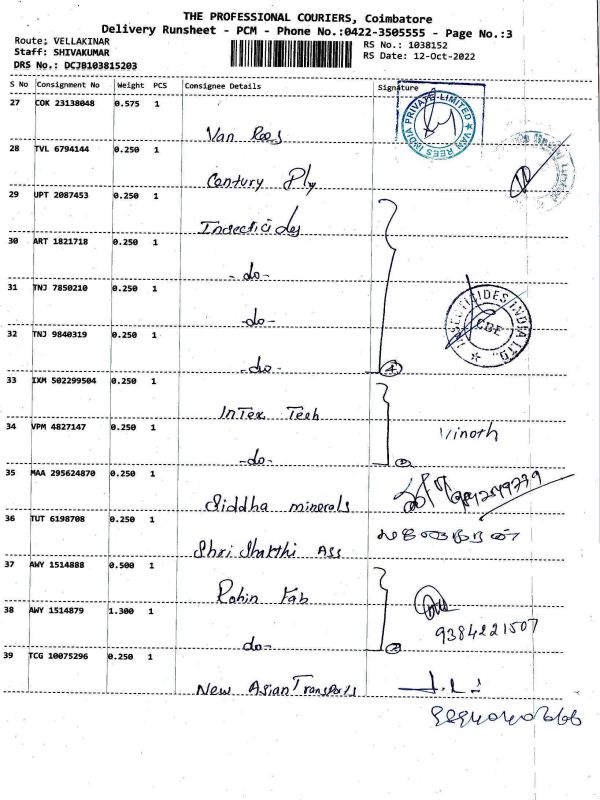 THE PROFESSIONAL COURIERS, Coimbatore
Delivery Runsheet - PCM - Phone No.:0422-3505555 - Page No.:3
Route; VELLAKINAR
Staff: SHIVAKUMAR
DRS No.: DCJB103815203
RS No.: 1038152
RS Date: 12-Oct-2022
S No Consignment No Weight PCS Consignee Details Signature
27 COK 23138048 0.575 1 Van Rees
VAN REES INDIA PRIVATE LIMITED
28 TVL 6794144 0.250 1 Century Ply
29 UPT 2087453 0.250 1 Insecticides
30 ART 1821718 0.250 1 -do-
31 TNJ 7850210 0.250 1 -do-
INSECTICIDES INDIA LTD.
CBE
32 TNJ 9840319 0.250 1 -do- 4
33 IXM 502299504 0.250 1 InTex Tech
34 VPM 4827147 0.250 1 -do- Vinoth
35 MAA 295624870 0.250 1 Siddha minerals
36 TUT 6198708 0.250 1 Shri Shakthi Ass
37 AWY 1514888 0.500 1 Robin Fab
38 AWY 1514879 1.300 1 do- 2
9384221507
39 TCG 10075296 0.250 1 New Asian Transports